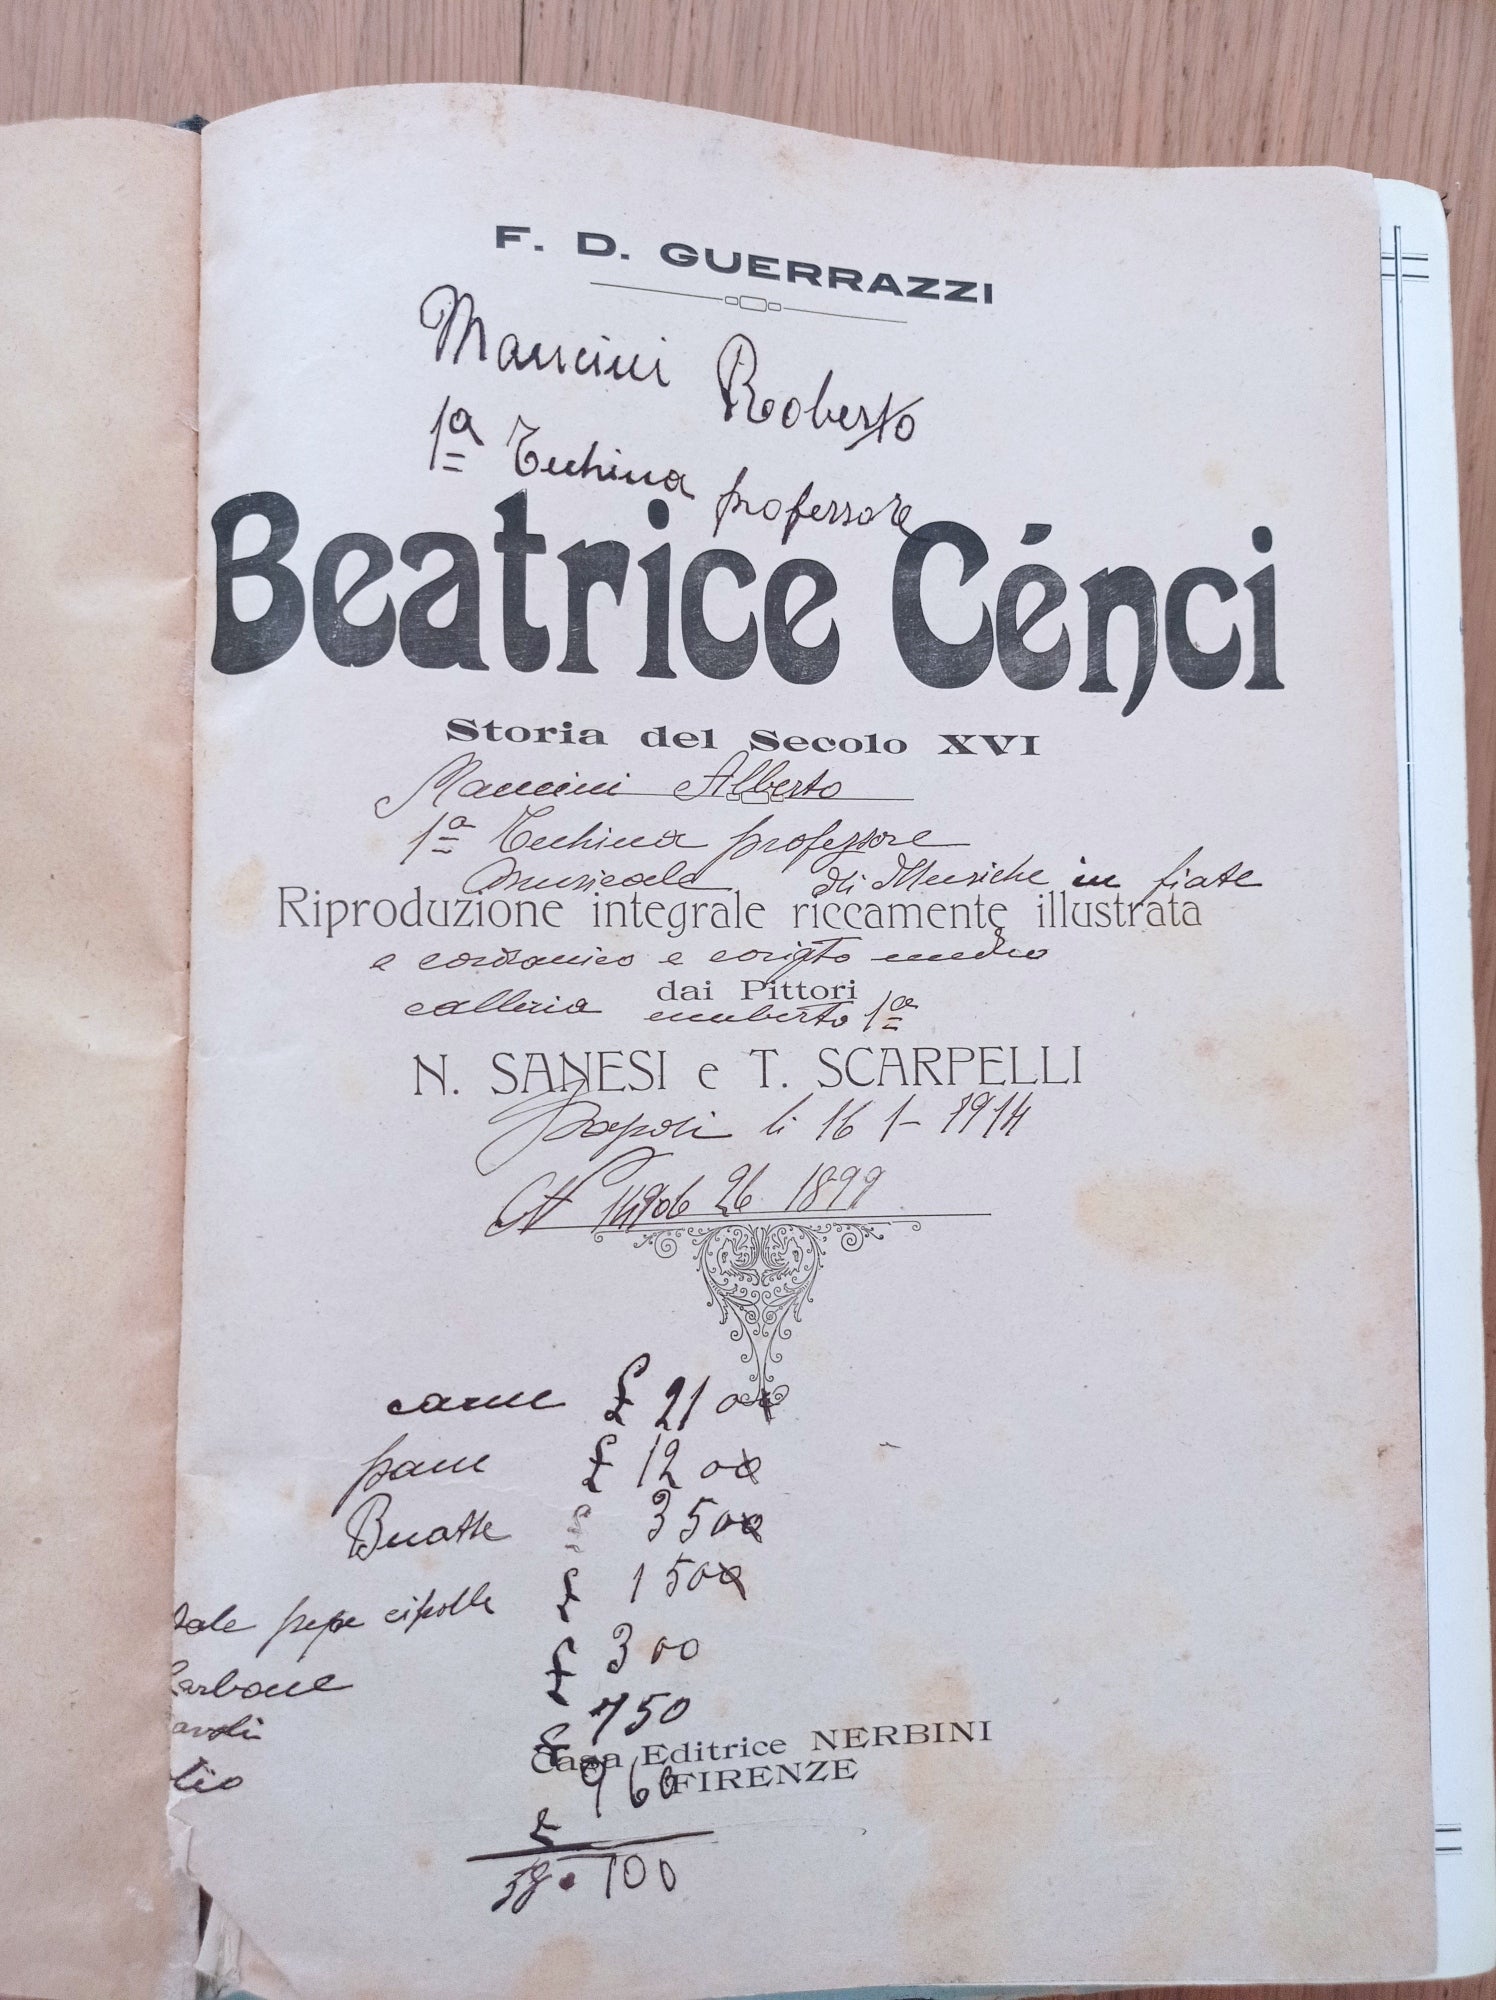 F. D. GUERRAZZI
Mancini Roberto
1ª Technica professore
Beatrice Cénci
Storia del Secolo XVI
Mancini Alberto
1ª Technica professore
musicale di Musiche in fiate
Riproduzione integrale riccamente illustrata
e
dai Pittori
calleria umberto 1ª
N. SANESI e T. SCARPELLI
Napoli li 16 1 - 1914
26 1899
carne £ 21 00
pane £ 12 00
Buatte 3 500
sale pepe cipolle £ 1 500
Carbone £ 3 00
avoli £ 750
olio 960
Casa Editrice NERBINI
FIRENZE
£
100